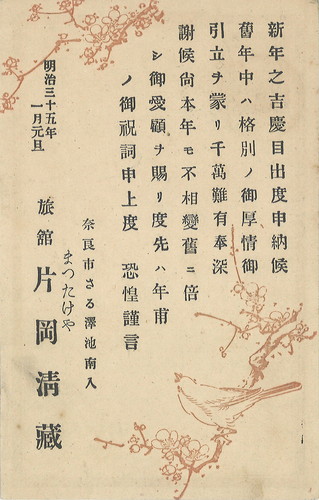 新年之吉慶目出度申納候
舊年中ハ格別ノ御厚情御
引立ヲ蒙リ千萬難有奉深
謝候尚本年モ不相變舊ニ倍
シ御愛顧ヲ賜リ度先ハ年甫
ノ御祝詞申上度 恐惶謹言
明治三十五年
一月元旦
奈良市さる澤池南入
まつたけや
旅館 片岡清藏